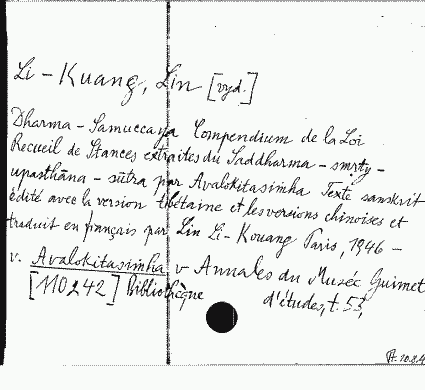 Li-Kuang, Lin [vyd.]
Dharma-Samuccaya Compendium de la Loi
Recueil de Stances extraites du Saddharma-smrty-
upasthāna-sūtra par Avalokitasimha Texte sanskrit
édité avec la version tibétaine et les versions chinoises et
traduit en français par Lin Li-Kouang Paris, 1946 -
v. Avalokitasimha v Annales du Musée Guimet
[110242] Bibliothèque d'études, t. 53,